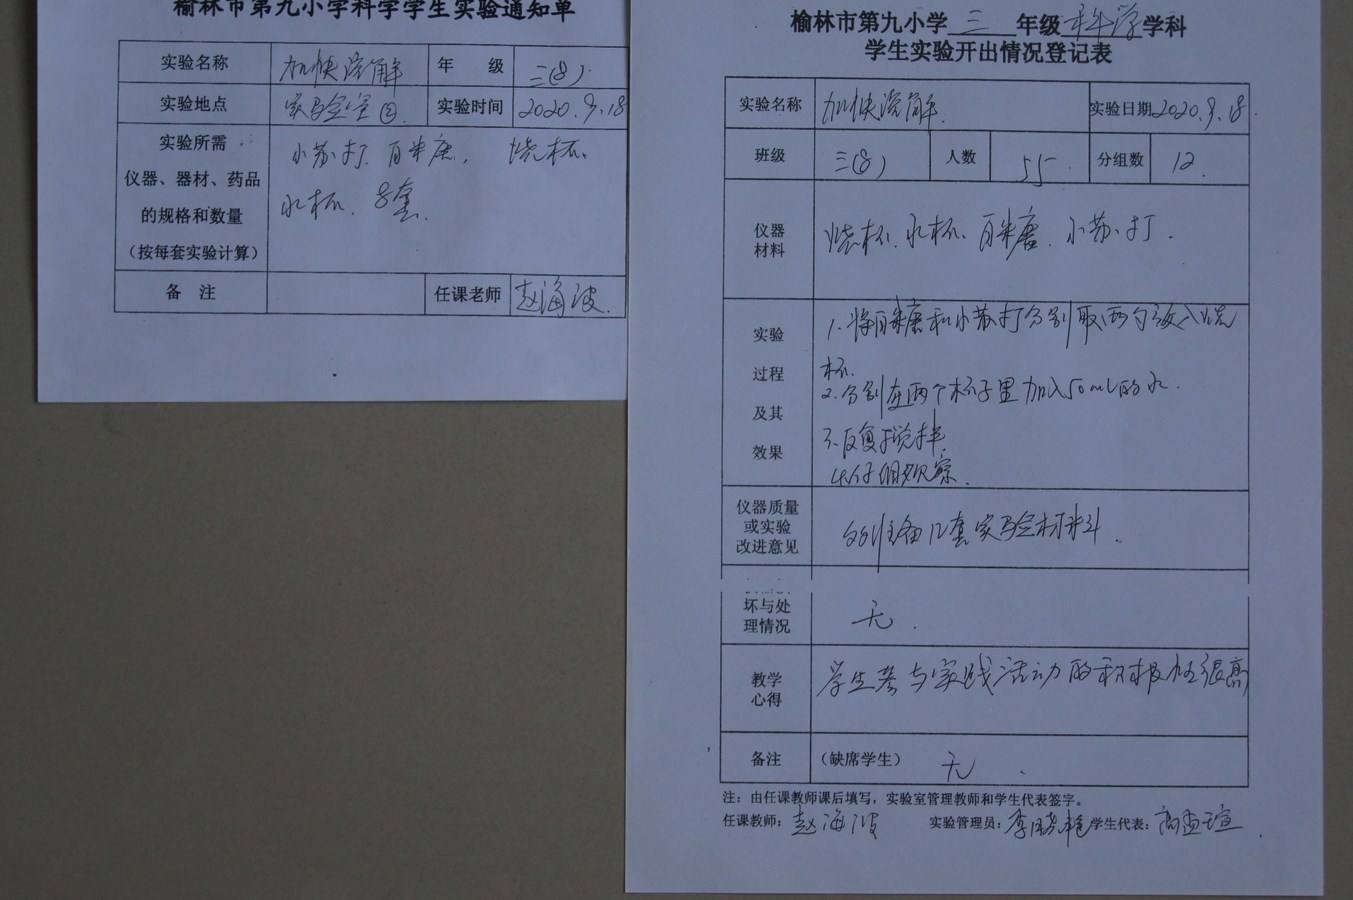 榆林市第九小学科学学生实验通知单
实验名称 加快溶解 年 级 三(8)
实验地点 实验室② 实验时间 2020.9.18
实验所需
仪器、器材、药品
的规格和数量
(按每套实验计算)
小苏打、白米唐, 烧杯、
水杯、8套、
备 注 任课老师 赵海波
榆林市第九小学 三 年级 科学 学科
学生实验开出情况登记表
实验名称 加快溶解 实验日期 2020.9.18.
班级 三(8) 人数 55 分组数 12
仪器
材料
烧杯、水杯、白米唐、小苏打.
实验
过程
及其
效果
1. 将白糖和小苏打分别取两勺放入烧
杯.
2. 分别在两个杯子里加入50ml的水.
3. 反复搅拌.
4. 仔细观察.
仪器质量
或实验
改进意见
准备几套实验材料.
坏与处
理情况
无.
教学
心得
学生参与实践活动的积极性很高
备注 (缺席学生) 无.
注:由任课教师课后填写,实验室管理教师和学生代表签字。
任课教师: 赵海波 实验管理员: 李晓艳 学生代表: